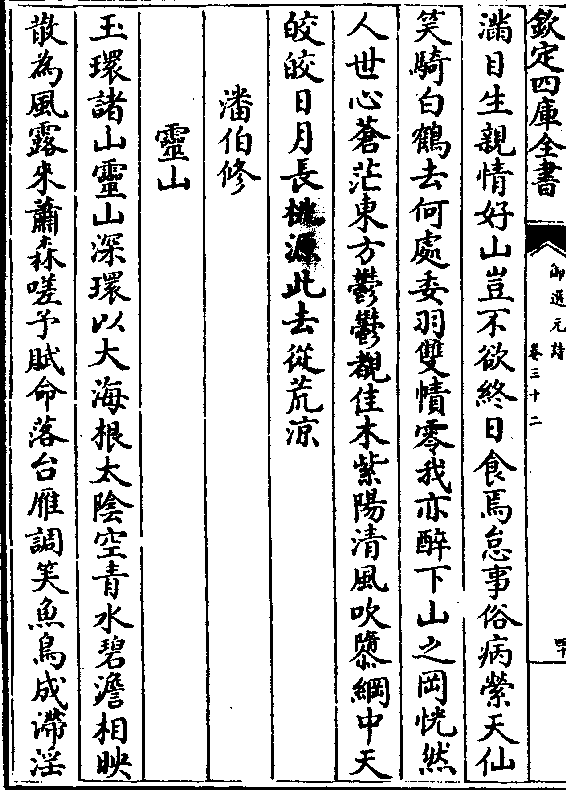 欽定四庫全書
御選元詩
卷三十二
滿目生親情好山豈不欲終日食焉怠事俗病縈天仙
笑騎白鶴去何處委羽雙幘零我亦醉下山之岡恍然
人世心蒼茫東方鬱鬱觀佳木紫陽清風吹隳綱中天
皎皎日月長桃源此去從荒涼
潘伯修
靈山
玉環諸山靈山深環以大海根太陰空青水碧澹相映
散為風露來蕭森嗟予賦命落台雁調笑魚鳥成滯淫